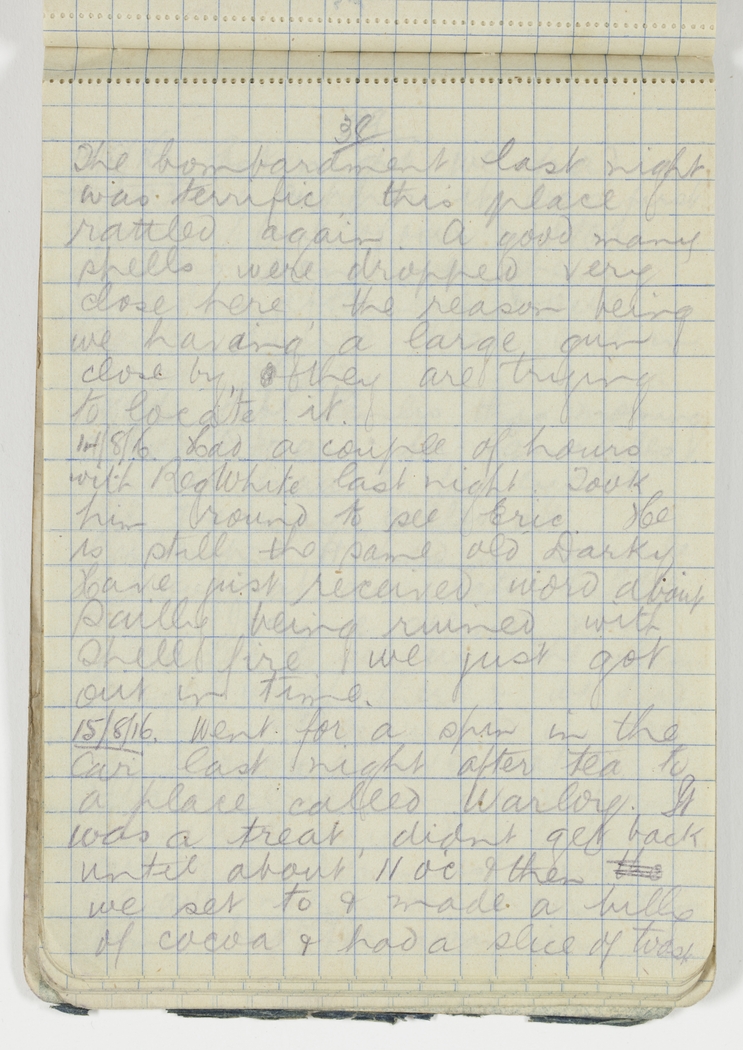 38
The bombardment last night
was terrific this place
rattled again. A good many
shells were dropped very
close here the reason being
we having a large gun
close by, & they are trying
to locate it.
14/8/16. Had a couple of hours
with Reg White last night. Took
him round to see Eric. He
is still the same old Darky
Have just received word about
Sailly being ruined with
shell fire, we just got
out in time.
15/8/16. Went for a spin in the
Car last night after tea to
a place called Warloy. It
was a treat, didnt get back
until about 11 oc & then
we set to & made a billy
of cocoa & had a slice of toast